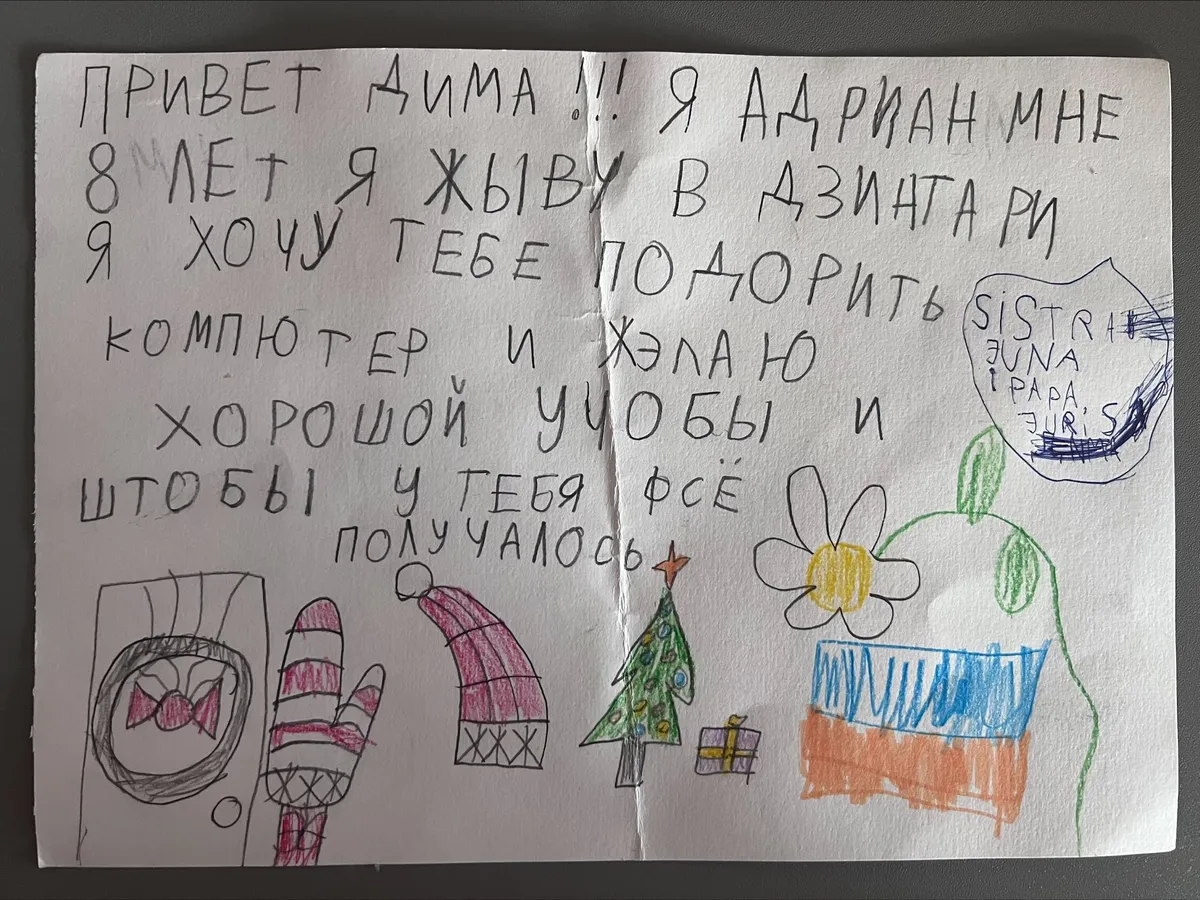 ПРИВЕТ ДИМА!!! Я АДРИАН МНЕ
8 ЛЕТ Я ЖЫВУ В ДЗИНТАРИ
Я ХОЧУ ТЕБЕ ПОДОРИТЬ
КОМПЮТЕР И ЖЭЛАЮ
ХОРОШОЙ УЧОБЫ И
ШТОБЫ У ТЕБЯ ФСЁ
ПОЛУЧАЛОСЬ
SiSTRA
JUNA
i PAPA
JURiS